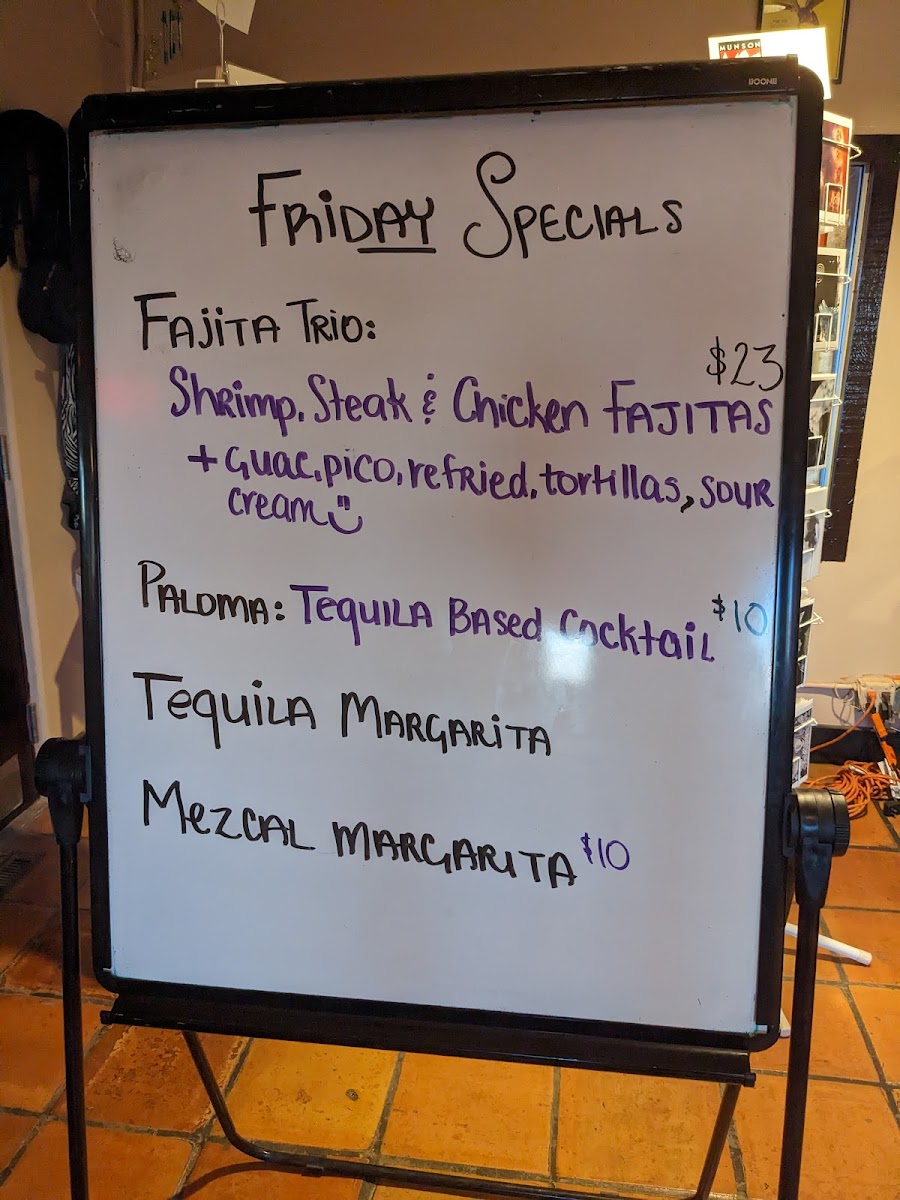 MUNSON
BOONE
FRiDAY SPECIALS
FAJiTA TRiO:
$23
Shrimp, Steak & Chicken FAJITAS
+ Guac, pico, refried, tortillas, sour
cream
PALOMA: TEQUILA BASED Cocktail $10
TEQUILA MARGARiTA
MEZCAL MARGARITA $10